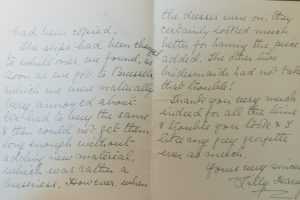 had been copied.
The slips had been changed
to white ones, we found, as
soon as we got to Brussels
which we were naturally
very annoyed about.
We had to buy the same
& then could not get them
long enough without
adding new material,
which was rather a
business. However when
the dresses were on, they
certainly looked much
better for having the piece
added. The other two
bridesmaids had not taken
that trouble!
Thank you very much
indeed for all the time
& trouble you took & I
like my grey georgette
ever so much
Yours very sincerely
Lilly